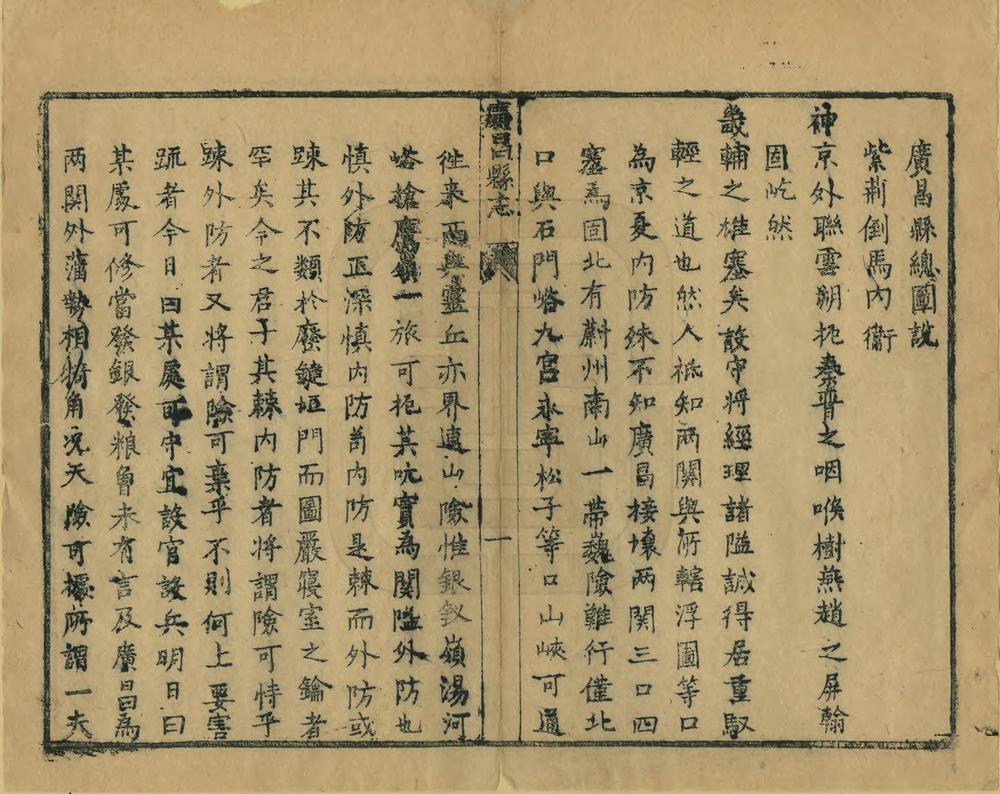 廣昌縣總圖說
紫荊倒馬內衞
神京外聯雲朔扼秦晉之咽喉樹燕趙之屏翰
固屹然
畿輔之雄塞矣設守將經理諸隘誠得居重馭
輕之道也然人祗知兩關與所轄浮圖等口
為京夏內防殊不知廣昌接壤两関三口四
塞為固北有蔚州南山一帶巍險難行僅北
口與石門峪九宮永寧松子等口山峽可通
廣昌縣志
一
徃来西與靈丘亦界連山險惟銀釵嶺湯河
峪槍鷹嶺一旅可扼其吭實為関隘外防也
慎外防正深慎內防若內防是竦而外防或
踈其不類於廢鍵垣門而圖嚴寢室之鑰者
罕矣今之君子其竦內防者將謂險可恃乎
踈外防者又將謂險可棄乎不則何上要害
疏者今日曰某處可守宜設官設兵明日曰
某處可修當發銀發粮曾未有言及廣昌為
两関外藩勢相犄角况天險可據所謂一夫